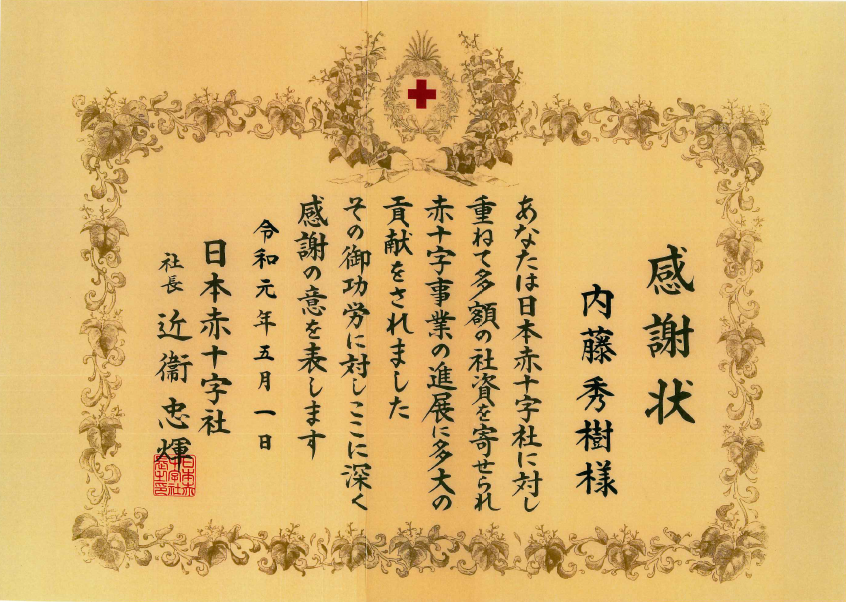 感謝状
内藤秀樹様
あなたは日本赤十字社に対し
重ねて多額の社資を寄せられ
赤十字事業の進展に多大の
貢献をされました
その御功労に対しここに深く
感謝の意を表します
令和元年五月一日
日本赤十字社
社長 近衞忠煇
日本赤
十字社
長之印